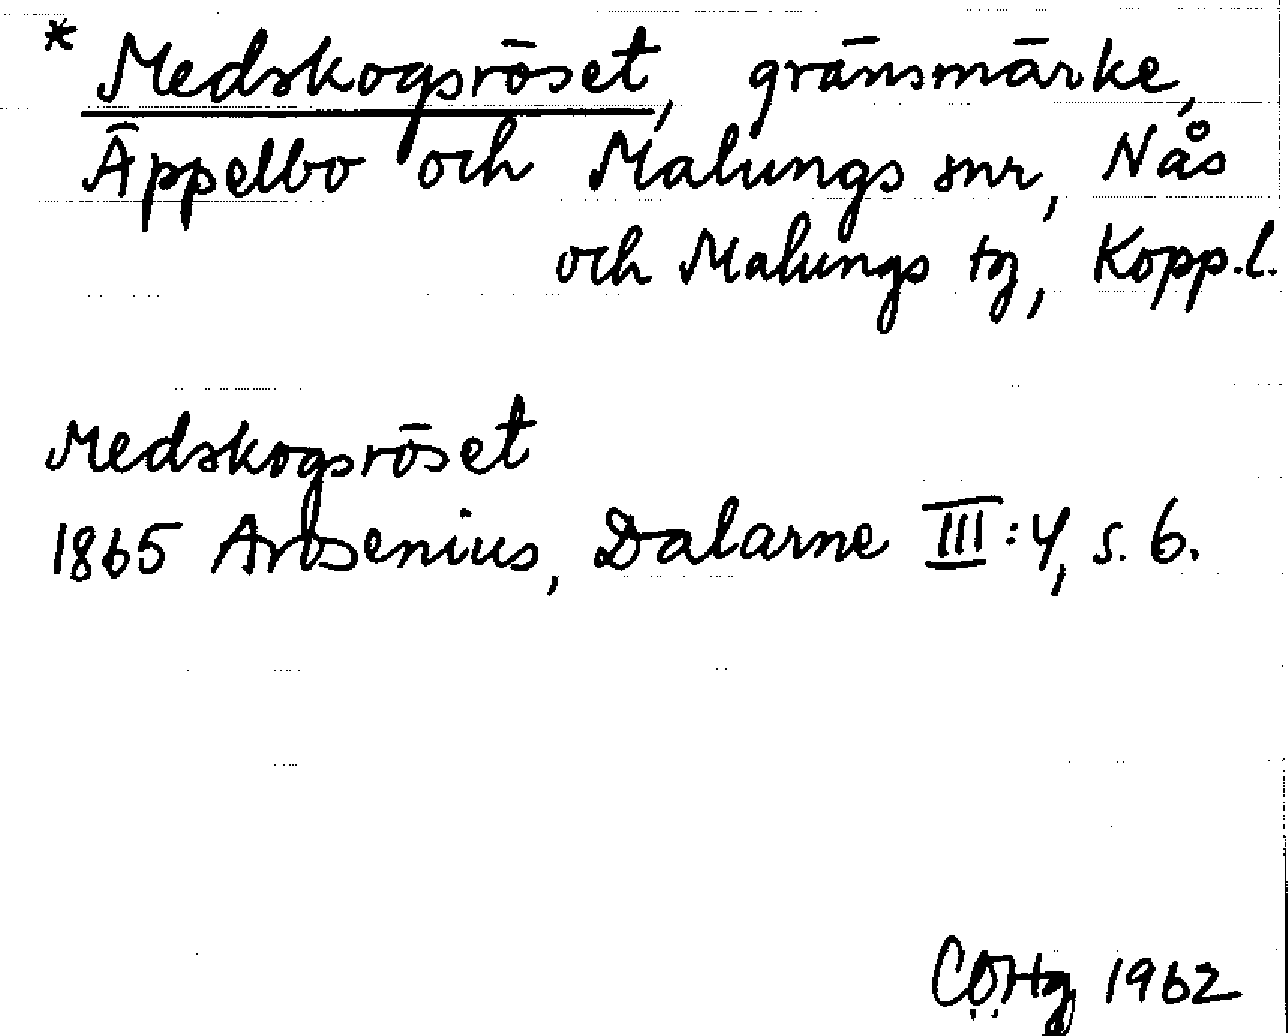 * Medskogsröset, gränsmärke,
Äppelbo och Malungs snr, Nås
och Malungs tg, Kopp.l.
Medskogsröset
1865 Arosenius, Dalarne III:4, s. 6.
1962